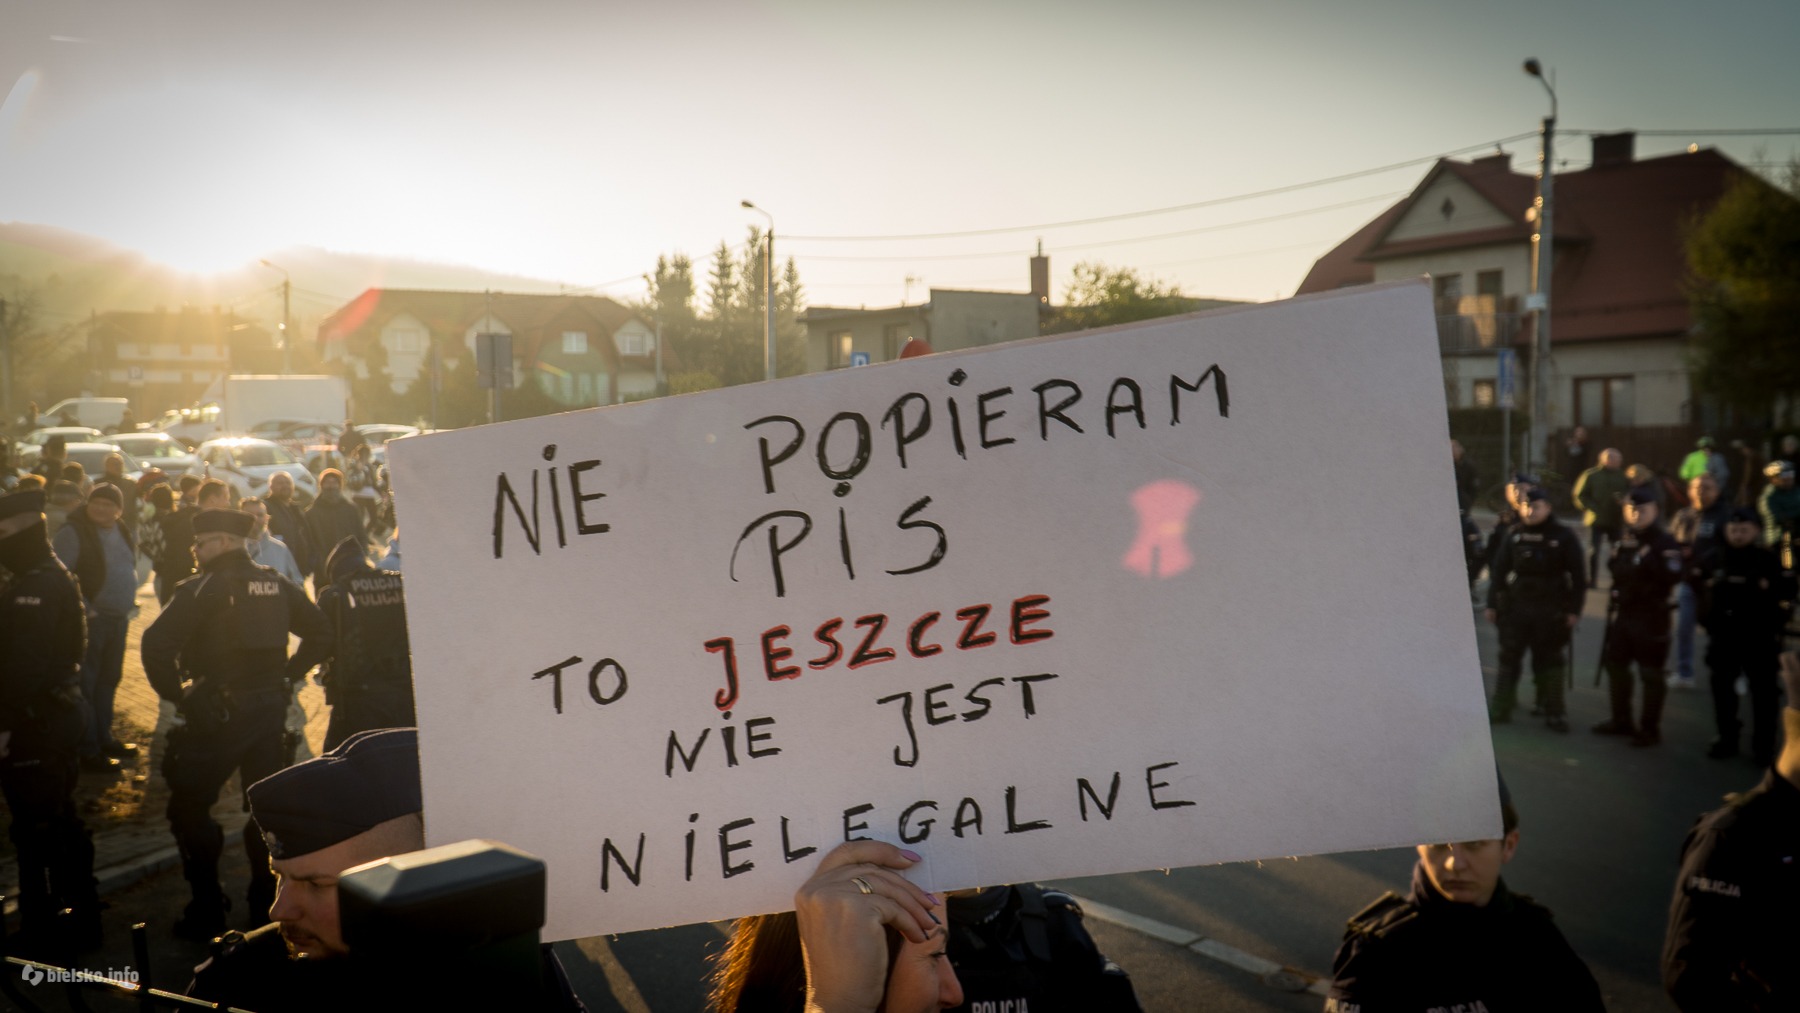 NIE POPIERAM
PIS
TO JESZCZE
NIE JEST
NIELEGALNE
POLICJA
POLICJA
POLICJA
POLICJA
POLICJA
bielsko.info